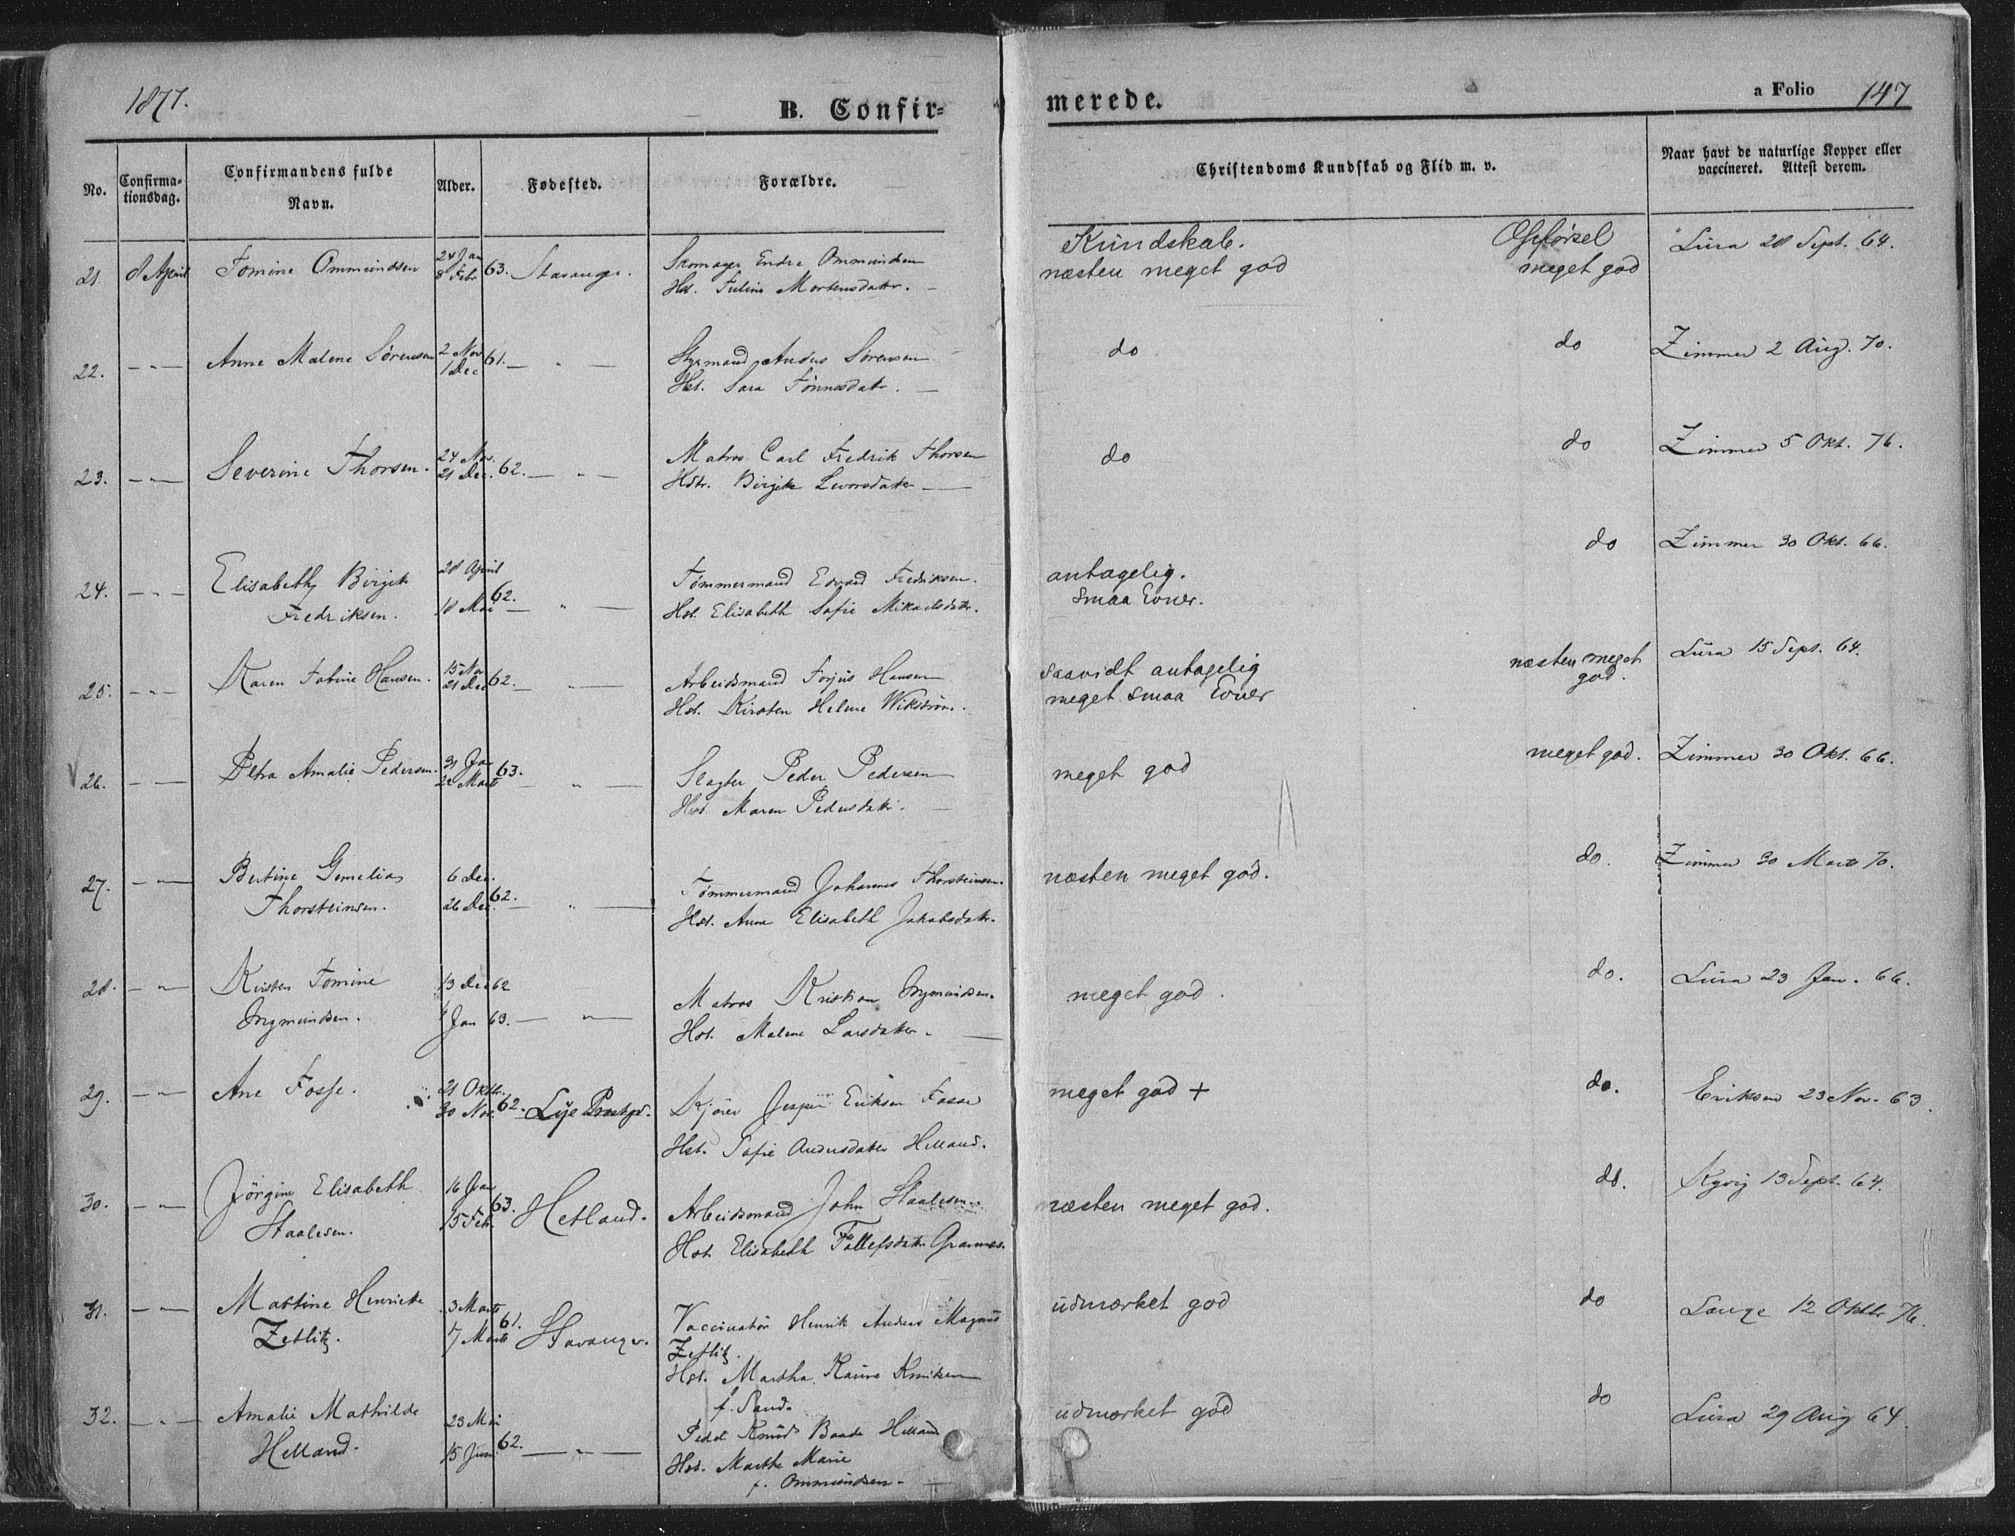 1877.
B. Confir=
merede.
a Folio 147
No.
Confirma-
tionsdag.
Confirmandens fulde
Navn.
Alder.
Fødested.
Forældre.
Christendoms Kundskab og Flid m. v.
Naar havt de naturlige Kopper eller
vaccineret. Attest derom.
Kundskab. Opførsel
21. 8 April Tomine Ommundsen 24 Jan 8 Febr 63. Stavanger.
Skomager Endre Ommundsen
Hst. Mortensdatter. —
næsten meget god meget god Lura 28 Sept. 64.
22. — " — Anne Malene Sørensen 2 Nov 1 Dec 61. — " —
Styrmand Anders Sørensen
Hst. Sara Tønnesdatr. —
do do Zimmer 2 Aug. 70.
23. — " — Severine Thorsen. 24 Nov. 21 Dec. 62. — " —
Matros Carl Fredrik Thorsen
Hstr. Birgitte —
do do Zimmer 5 Okt. 76.
24. — " — Elisabeth Birgitte
Fredriksen. 28 April 18 Mai 62. — " —
Tømmermand Edvard Fredriksen.
Hst. Elisabeth Sofie Mikaelsdatr.
antagelig.
smaa Evner.
do Zimmer 30 Okt. 66.
25. — " — Karen Tobine Hansen. 15 Nov 21 Dec 62. — " —
Arbeidsmand Torjus Hansen
Hst. Kirsten Helene Wikstrøm.
saavidt antagelig
meget smaa Evner
næsten meget
god.
Lura 15 Sept. 64.
26. — " — Petra Amalie Pedersen. 31 Jan 22 Marts 63. — " —
Slagter Peder Pedersen
Hst. Maren Pedersdatr. —
meget god meget god. Zimmer 30 Okt. 66.
27. — " — Bertine Gemelia
Thorsteinsen. 6 Dec. 26 Dec. 62. — " —
Tømmermand Johannes Thorsteinsen.
Hst. Anne Elisabeth Jakobsdatr.
næsten meget god. do. Zimmer 30 Marts 70.
28. — " — Kirsten Tomine
Ingmundsen. 13 Dec 62 1 Jan 63. — " —
Matros Kristian Ingmundsen.
Hst. Malene Larsdatter. —
meget god. do. Lura 23 Jan. 66.
29. — " — Ane Fosse. 21 Oktbr. 30 Nov. 62. Lye Prstgd.
Kjører Jesper Eriksen Fosse
Hst. Sofie Andersdatter Helland.
meget god + do. Eriksen 23 Nov. 63.
30. — " — Jörgine Elisabeth
Staalesen. 16 Jan 15 Febr. 63. Hetland.
Arbeidsmand John Staalesen
Hst. Elisabeth Tollefsdatr Grannes.
næsten meget god. do. Kyvig 13 Sept. 64.
31. — " — Martine Henriette
Zetlitz. 3 Marts 17 Marts 61. Stavanger.
Vaccinatør Henrik Anders Magnus
Zetlitz.
Hst. Martha Karine Knutsen
f. Sand.
udmærket god do Lange 12 Oktbr 76.
32. — " — Amalie Mathilde
Helland. 23 Mai 15 Juni 62. — " —
Pedel Knud Baade Helland
Hst. Marthe Marie
f. Ommundsen —
udmærket god do Lura 29 Aug 64.